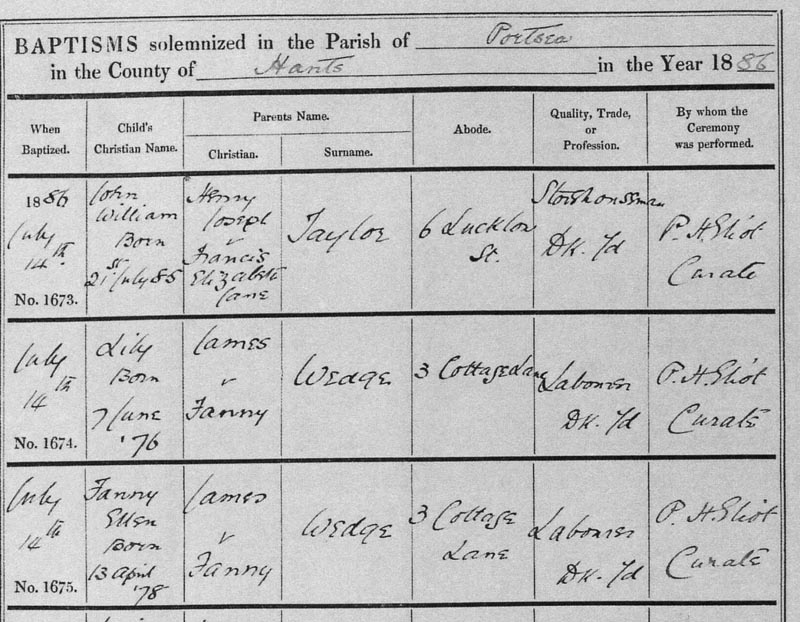 BAPTISMS solemnized in the Parish of Portsea
in the County of Hants in the Year 1886
When Baptized.
Child's Christian Name.
Parents Name.
Christian.
Surname.
Abode.
Quality, Trade, or Profession.
By whom the Ceremony was performed.
1886
July
14th.
No. 1673.
John
William
Born
21st July 85
Henry
Joseph
&
Francis
Elizabeth
Jane
Taylor
6 Lucklow
St.
Storehouseman
Dk. Yd
P. H. Eliot
Curate
July
14th
No. 1674.
Lily
Born
7 June
'76
James
&
Fanny
Wedge
3 Cottage Lane
Labourer
Dk. Yd
P. H. Eliot
Curate
July
14th
No. 1675.
Fanny
Ellen
Born
13 April
'78
James
&
Fanny
Wedge
3 Cottage
Lane
Labourer
Dk. Yd
P. H. Eliot
Curate